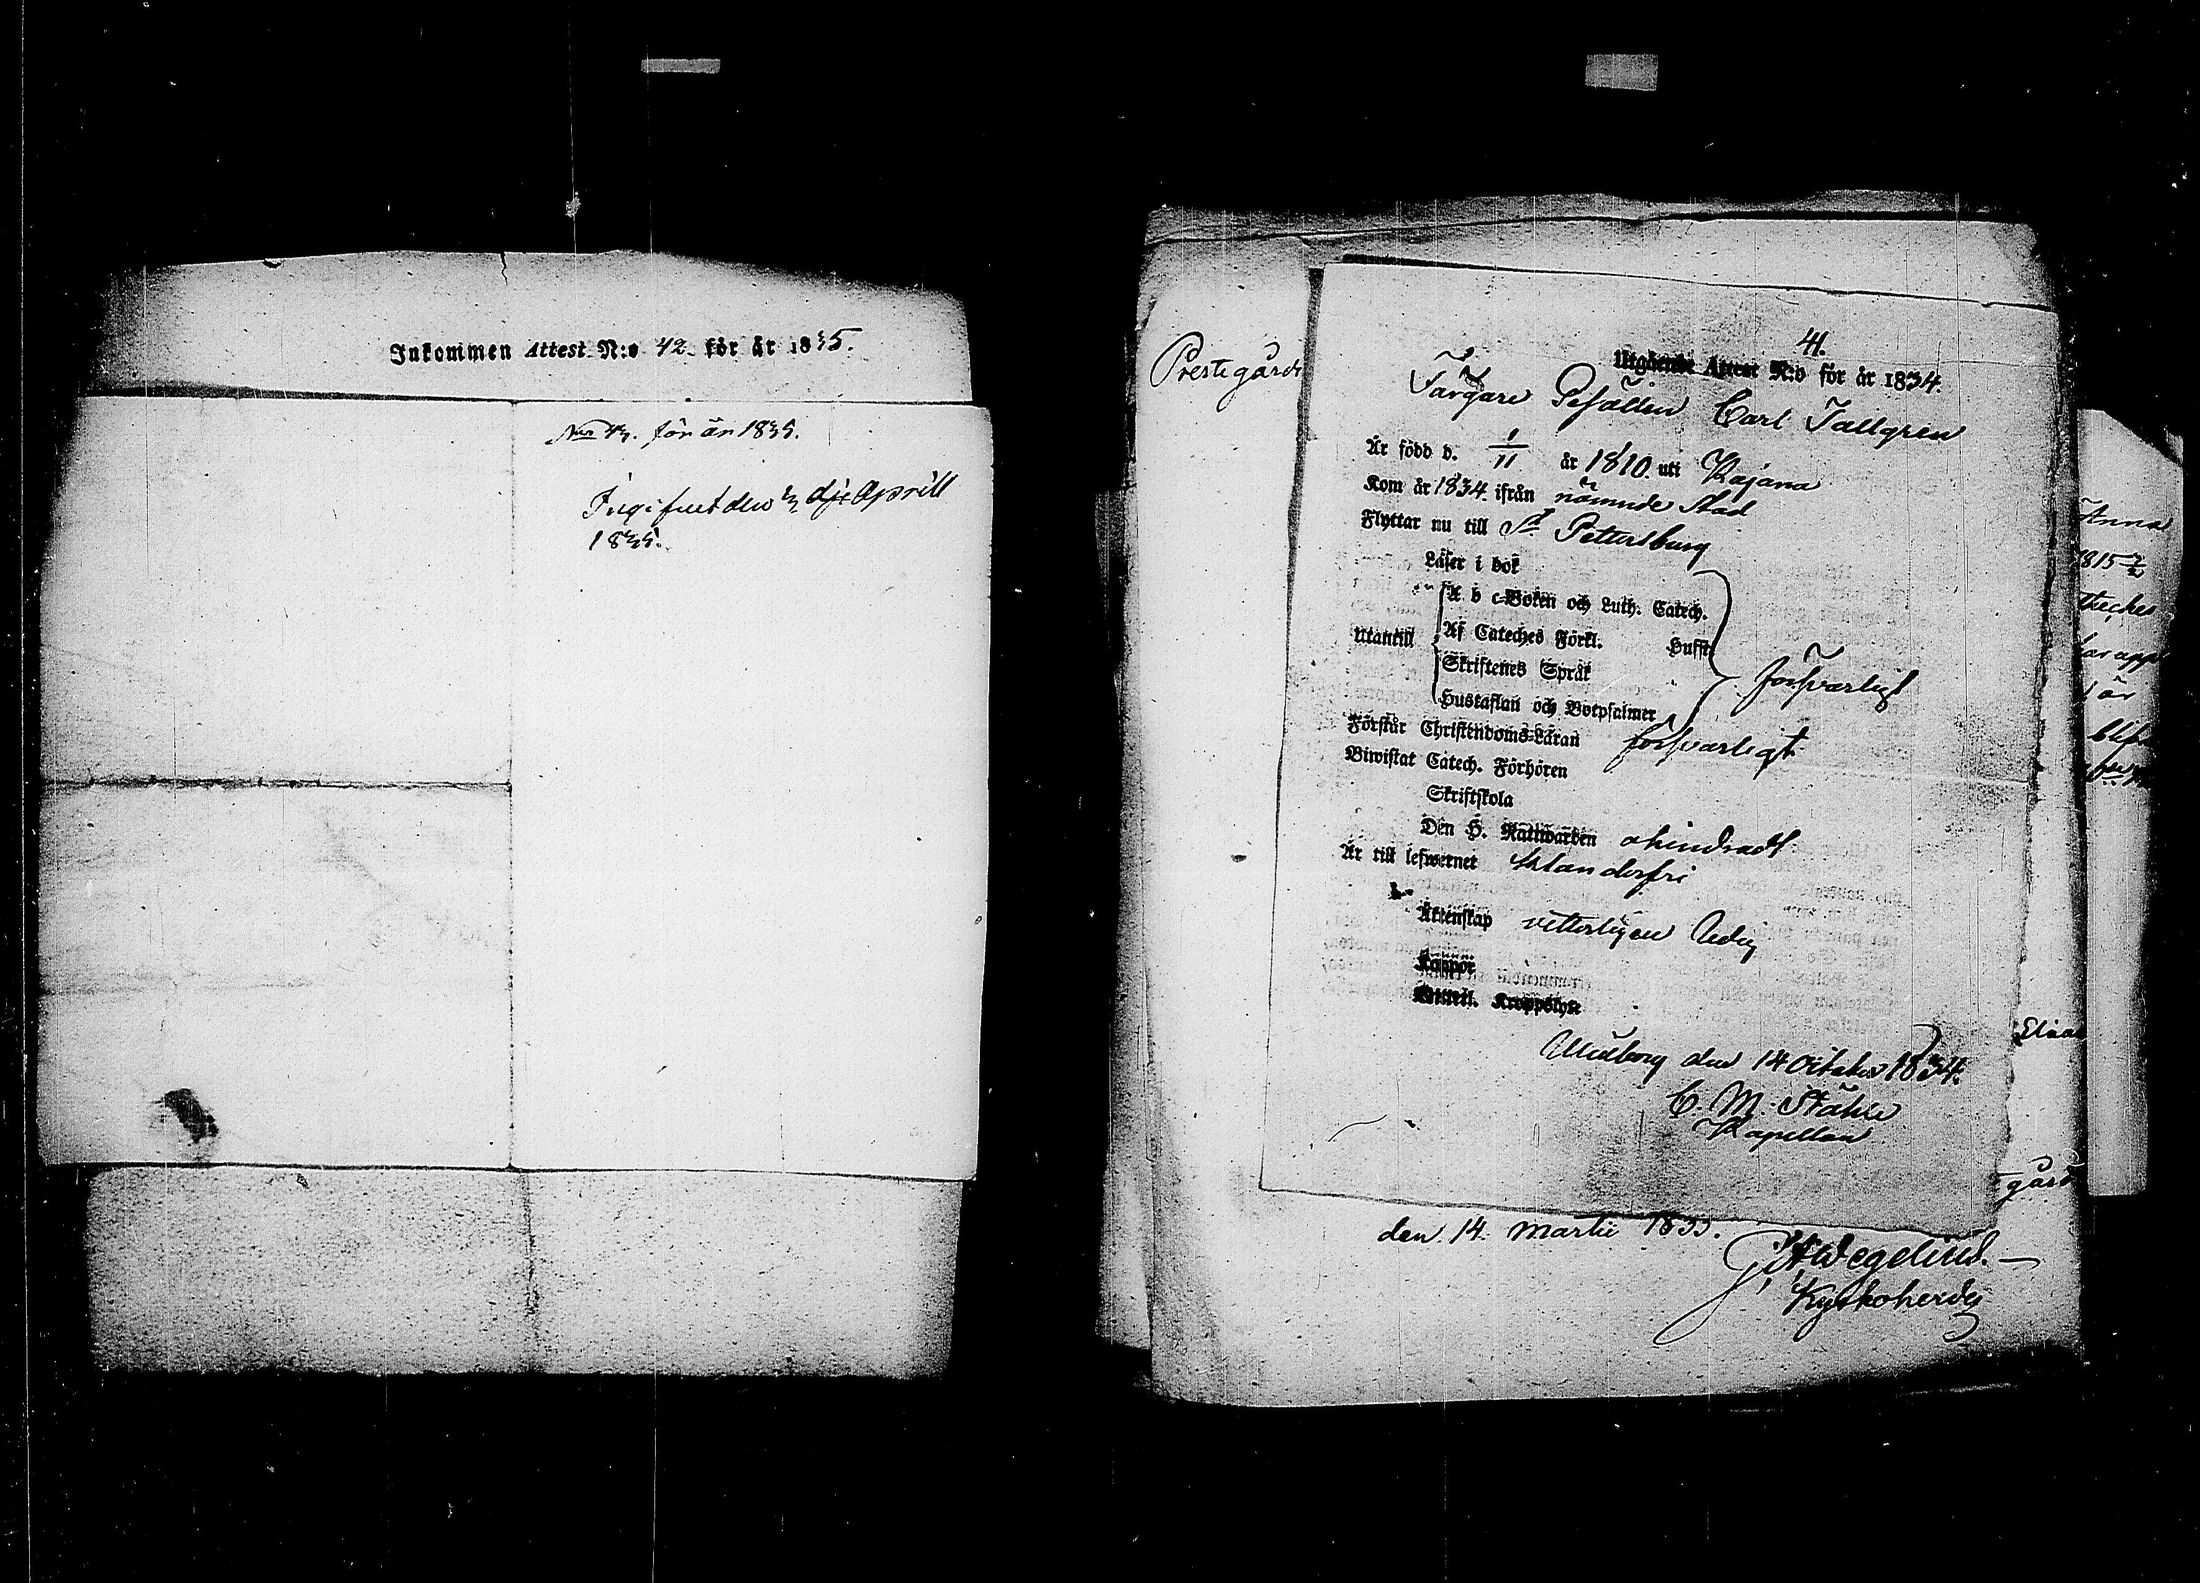 Inkommen Attest N:o 42. för år 1835.
N:o 43. för år 1835.
Ingifvet den 3 dje Aprill
1835.
Prestegård
41.
Utgående Attest N:o för år 1834.
Färgare Gesällen Carl Tallgren
Är född d. 1/11 år 1810. uti Kajana
Kom år 1834. ifrån nämnde Stad
Flyttar nu till St Pettersburg
Läser i bok
A b c-Boken och Luth. Catech.
Utantill Af Cateches Förkl. Hufst
Skriftenes Språk
försvarligt
Hustaflan och Botpsalmer
Förstår Christendoms-Läran försvarligt
Biwistat Catech. Förhören
Skriftskola
Den H. Nattwarden ohindradt
Är till lefwernet klanderfri
Äktenskap vetterligen ledig
Koppor
Uleåborg den 14 October 1834.
C. M. Ståhle
Kapellan
den 14. Martii 1835.
Wegelius.
Kyrkoherde
Anna
1815
gård